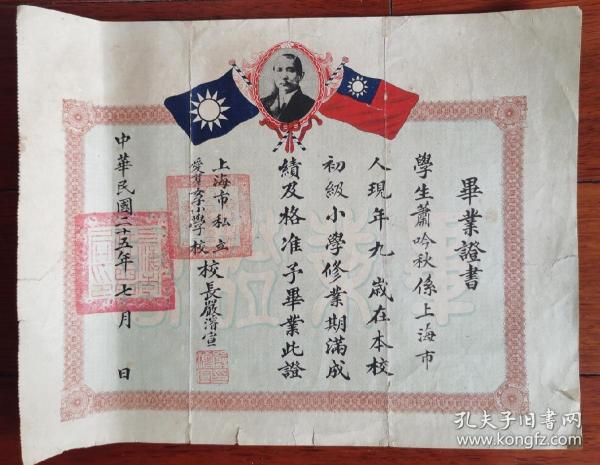 畢業證書
學生蕭吟秋係上海市
人現年九歲在本校
初級小學修業期滿成
績及格准予畢業此證
上海市私立
小學校
校長嚴濬宣
中華民國二十五年七月 日
孔夫子旧书网
www.kongfz.com